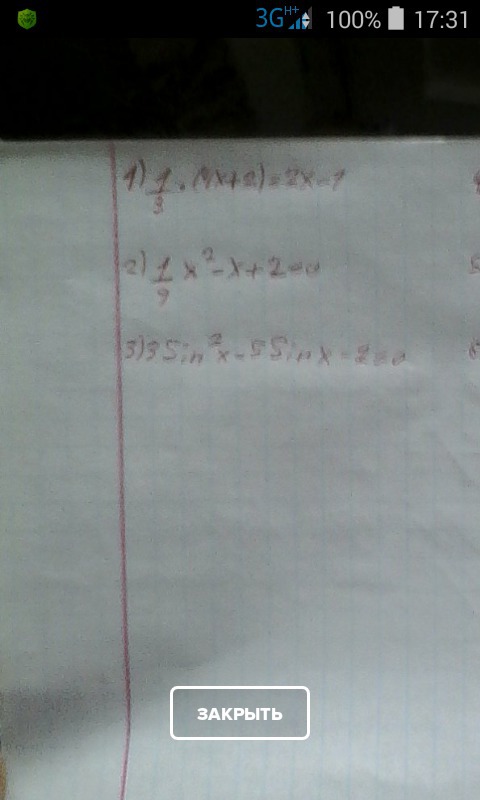 3G H+ 100% 17:31
1) 1/3 · (4x+2)=2x-1
2) 1/9 x²-x+2=0
3) 3Sin²x-5Sinx-2=0
ЗАКРЫТЬ